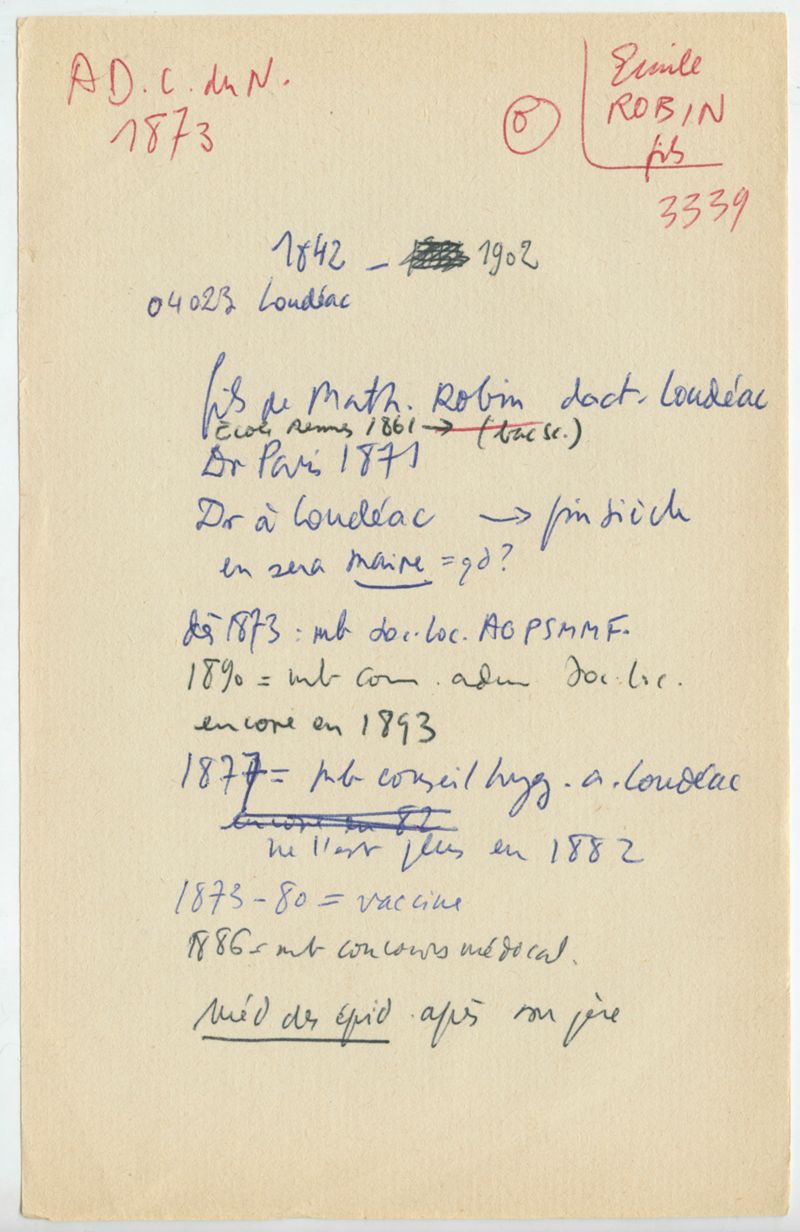 AD. C. du N.
1873
Emile
ROBIN
fils
3339
1842 – 1902
04023 Loudéac
fils de Math. Robin doct. Loudéac
Ecole Rennes 1861 → (bac sc.)
Dr Paris 1871
Dr à Loudéac → fin siècle
en sera maire = qd?
dès 1873 : mb soc. loc. AGPSMMF.
1890 = mb com. adm Soc. loc.
encore en 1893
1877 = mb conseil hyg. a. Loudéac
encore en 82
ne l'est plus en 1882
1873 – 80 = vaccine
1886 = mb concours médical.
Méd des épid. après son père